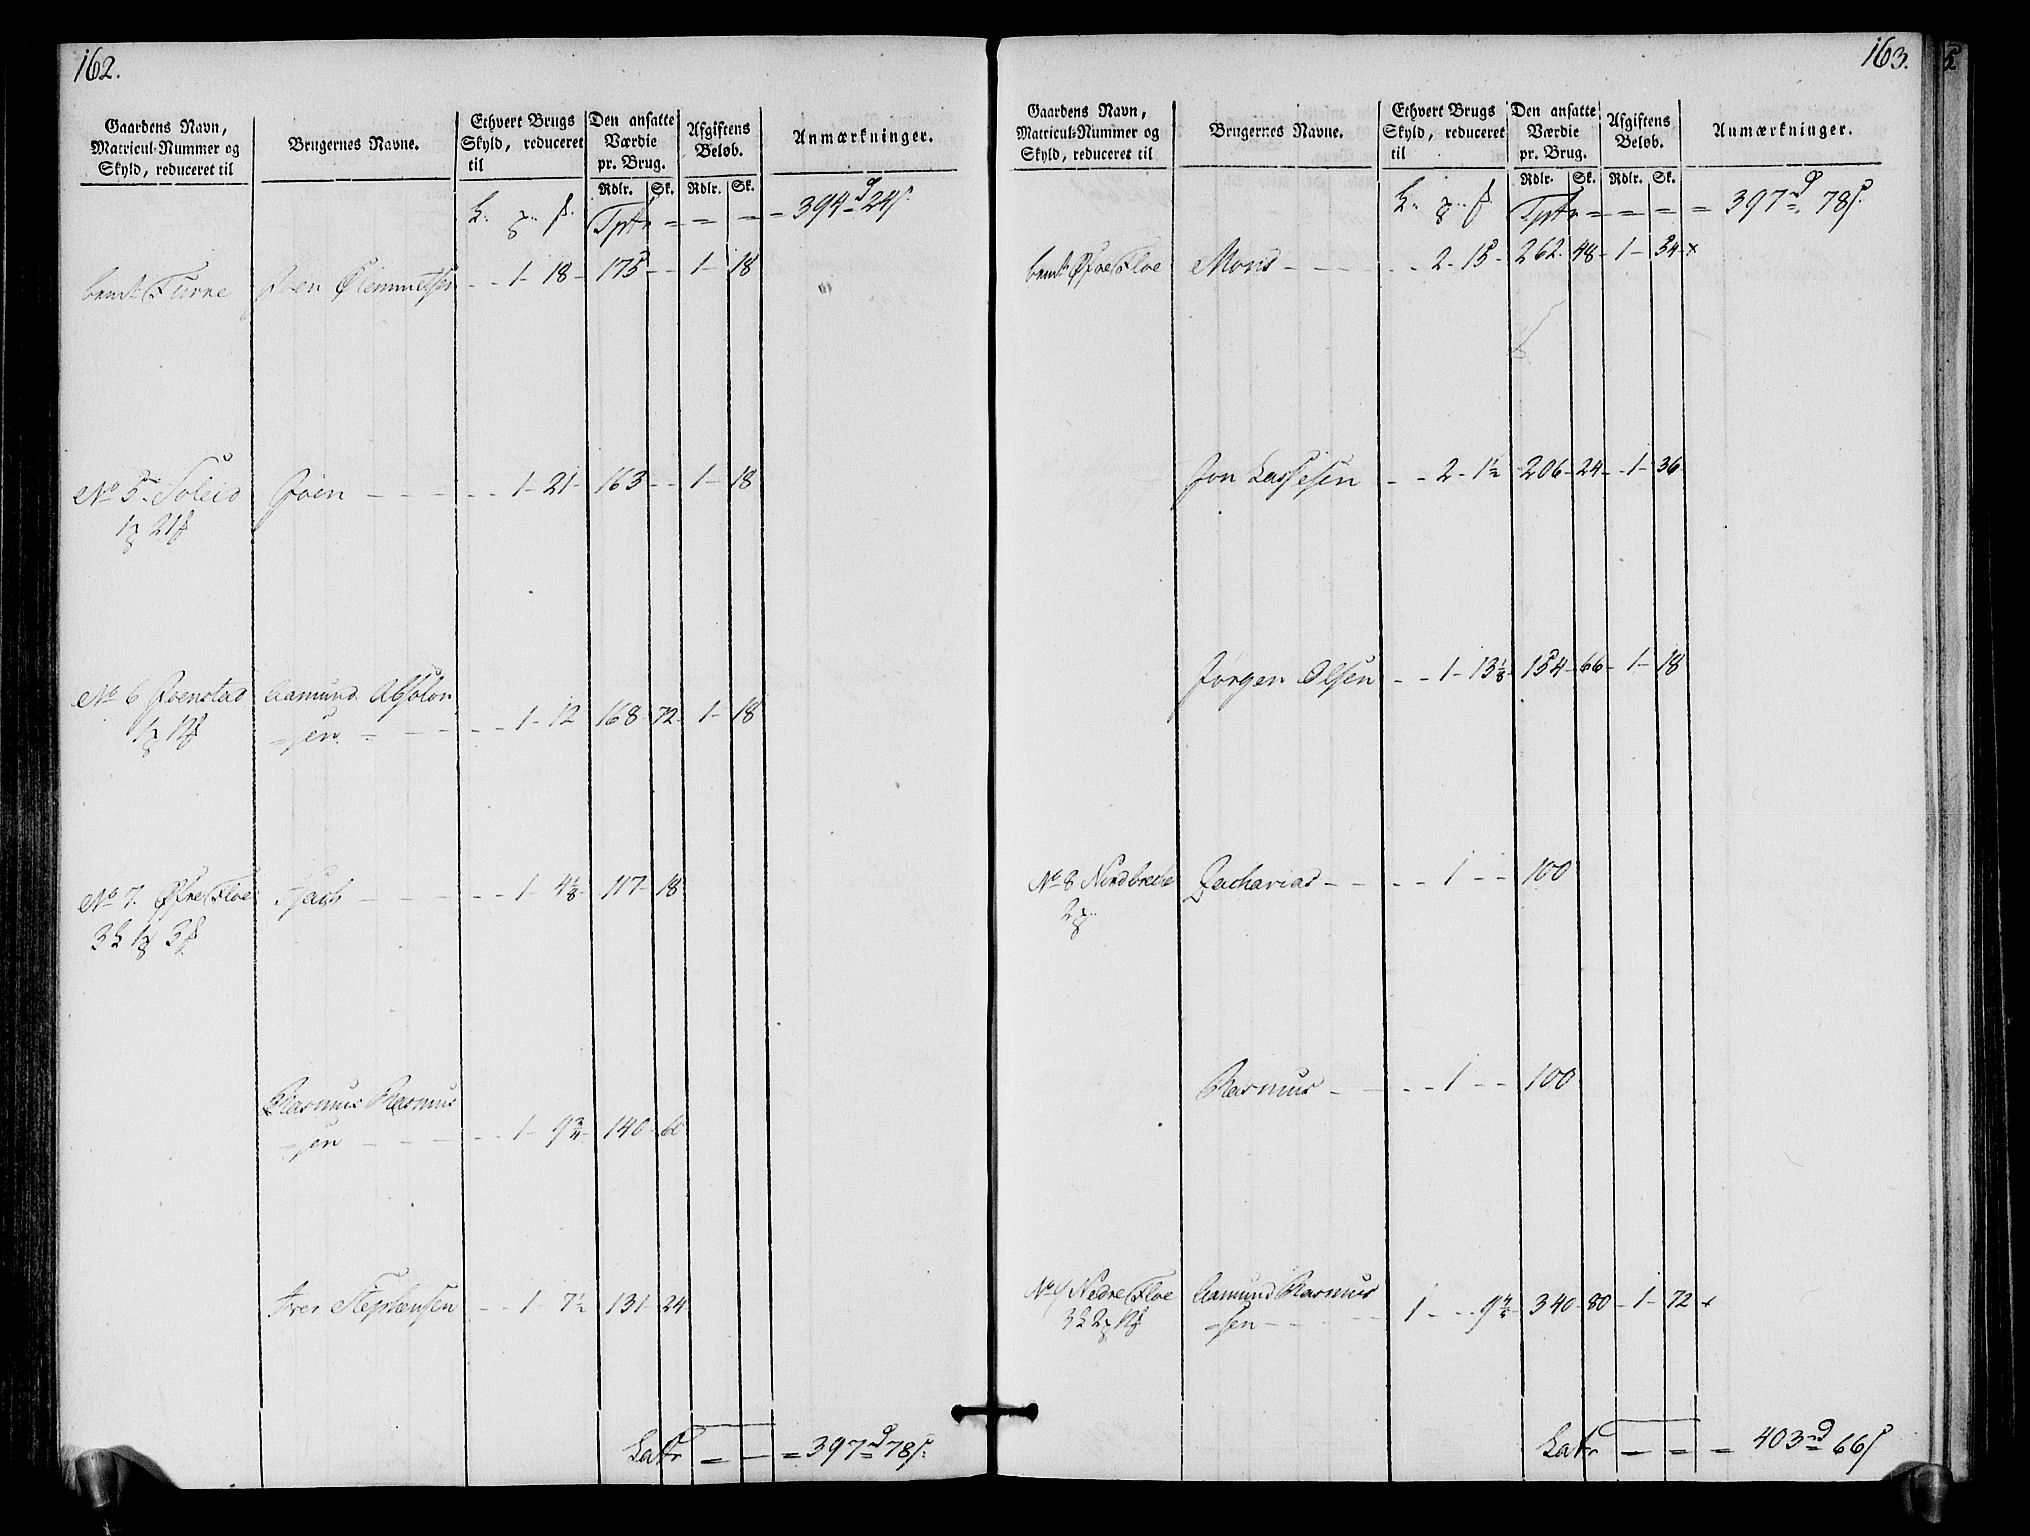 162.
Gaardens Navn,
Matricul-Nummer og
Skyld, reduceret til
Brugernes Navne.
Ethvert Brugs
Skyld, reduceret
til
Den ansatte
Værdie
pr. Brug.
Rdlr. Sk.
Afgiftens
Beløb.
Rdlr. Sk.
Anmærkninger.
Tptr = = = = 394 24
Furne 1 - 18 - 175 - - 1 - 18
No 5 Soleid Joen - - - - 1 - 21 - 163 - - 1 - 18
1 21
No 6 Joenstad Aamund Absolon
1 12 =sen = - - - 1 - 12 168 - 72 - 1 - 18
No 7. Øfre Floe - - - - 1 - 4 1/8 - 117 - 18
3 1 3
Rasmus Rasmus
=sen - - - - 1 - 9 3/4 - 140 - 60
Iver Stephensen - - 1 - 7 1/2 131 - 24
Latr = - = 397 78
163.
Gaardens Navn,
Matricul-Nummer og
Skyld, reduceret til
Brugernes Navne.
Ethvert Brugs
Skyld, reduceret
til
Den ansatte
Værdie
pr. Brug.
Rdlr. Sk.
Afgiftens
Beløb.
Rdlr. Sk.
Anmærkninger.
Tptr = = = = = 397 78
bemte Øfre Floe Mons - - - - - 2 - 15 - 262 - 48 - 1 - 34 - x
Jon Lassesen - - 2 - 1 1/2 - 206 - 24 - 1 - 36
Jørgen Olsen - - 1 - 13 1/8 - 154 - 66 - 1 - 18
No 8 Nordbrecke Zacharias - - - - 1 - - 100
2
Rasmus - - - - 1 - - 100
No 9 Nedre Floe Aamund Rasmus
3 2 12 =sen - - - - 1 - - 9 340 - 80 - 1 - 72 - x
Latr = = = 403 66